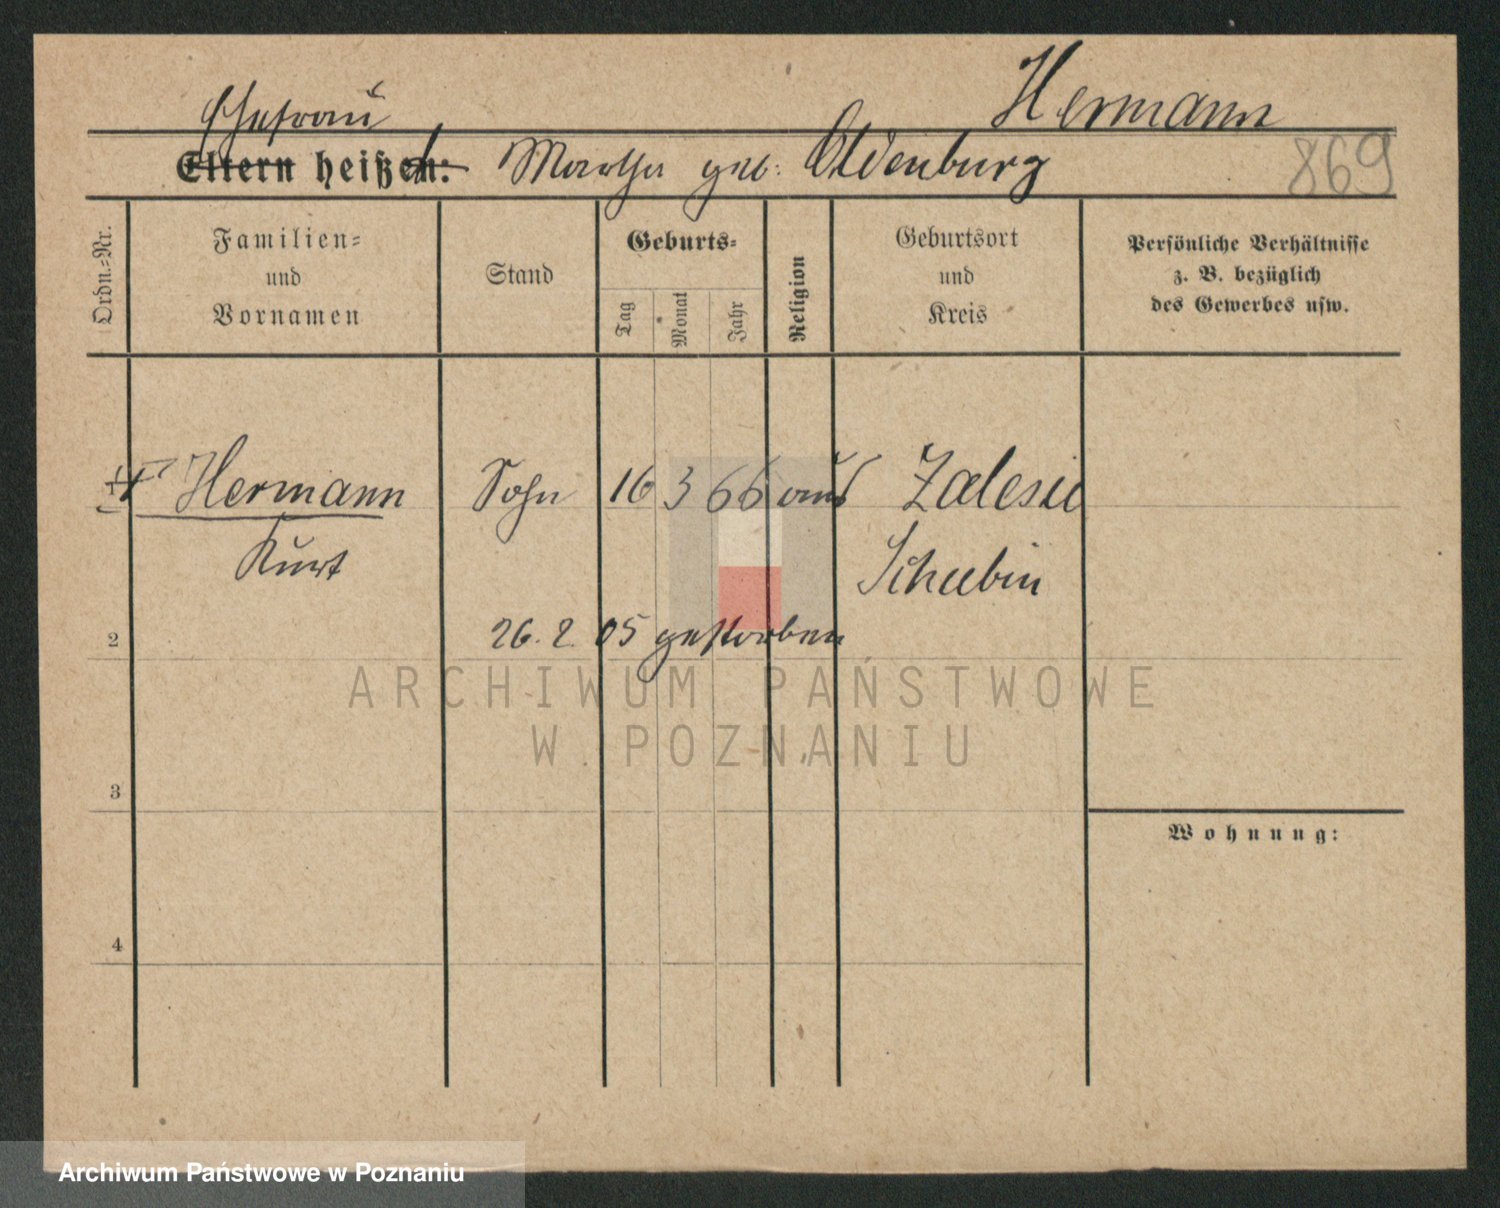 Hermann
Ehefrau
Eltern heißen: Martha geb. Oldenburg 869
Ordn.-Nr.
Familien-
und
Vornamen
Stand
Geburts-
Tag
Monat
Jahr
Religion
Geburtsort
und
Kreis
Persönliche Verhältnisse
z. B. bezüglich
des Gewerbes usw.
Hermann Sohn 16 3 66 Zalesie
Kurt Schubin
2 26. 2. 05 gestorben
ARCHIWUM PAŃSTWOWE
W POZNANIU
3
Wohnung:
4
Archiwum Państwowe w Poznaniu